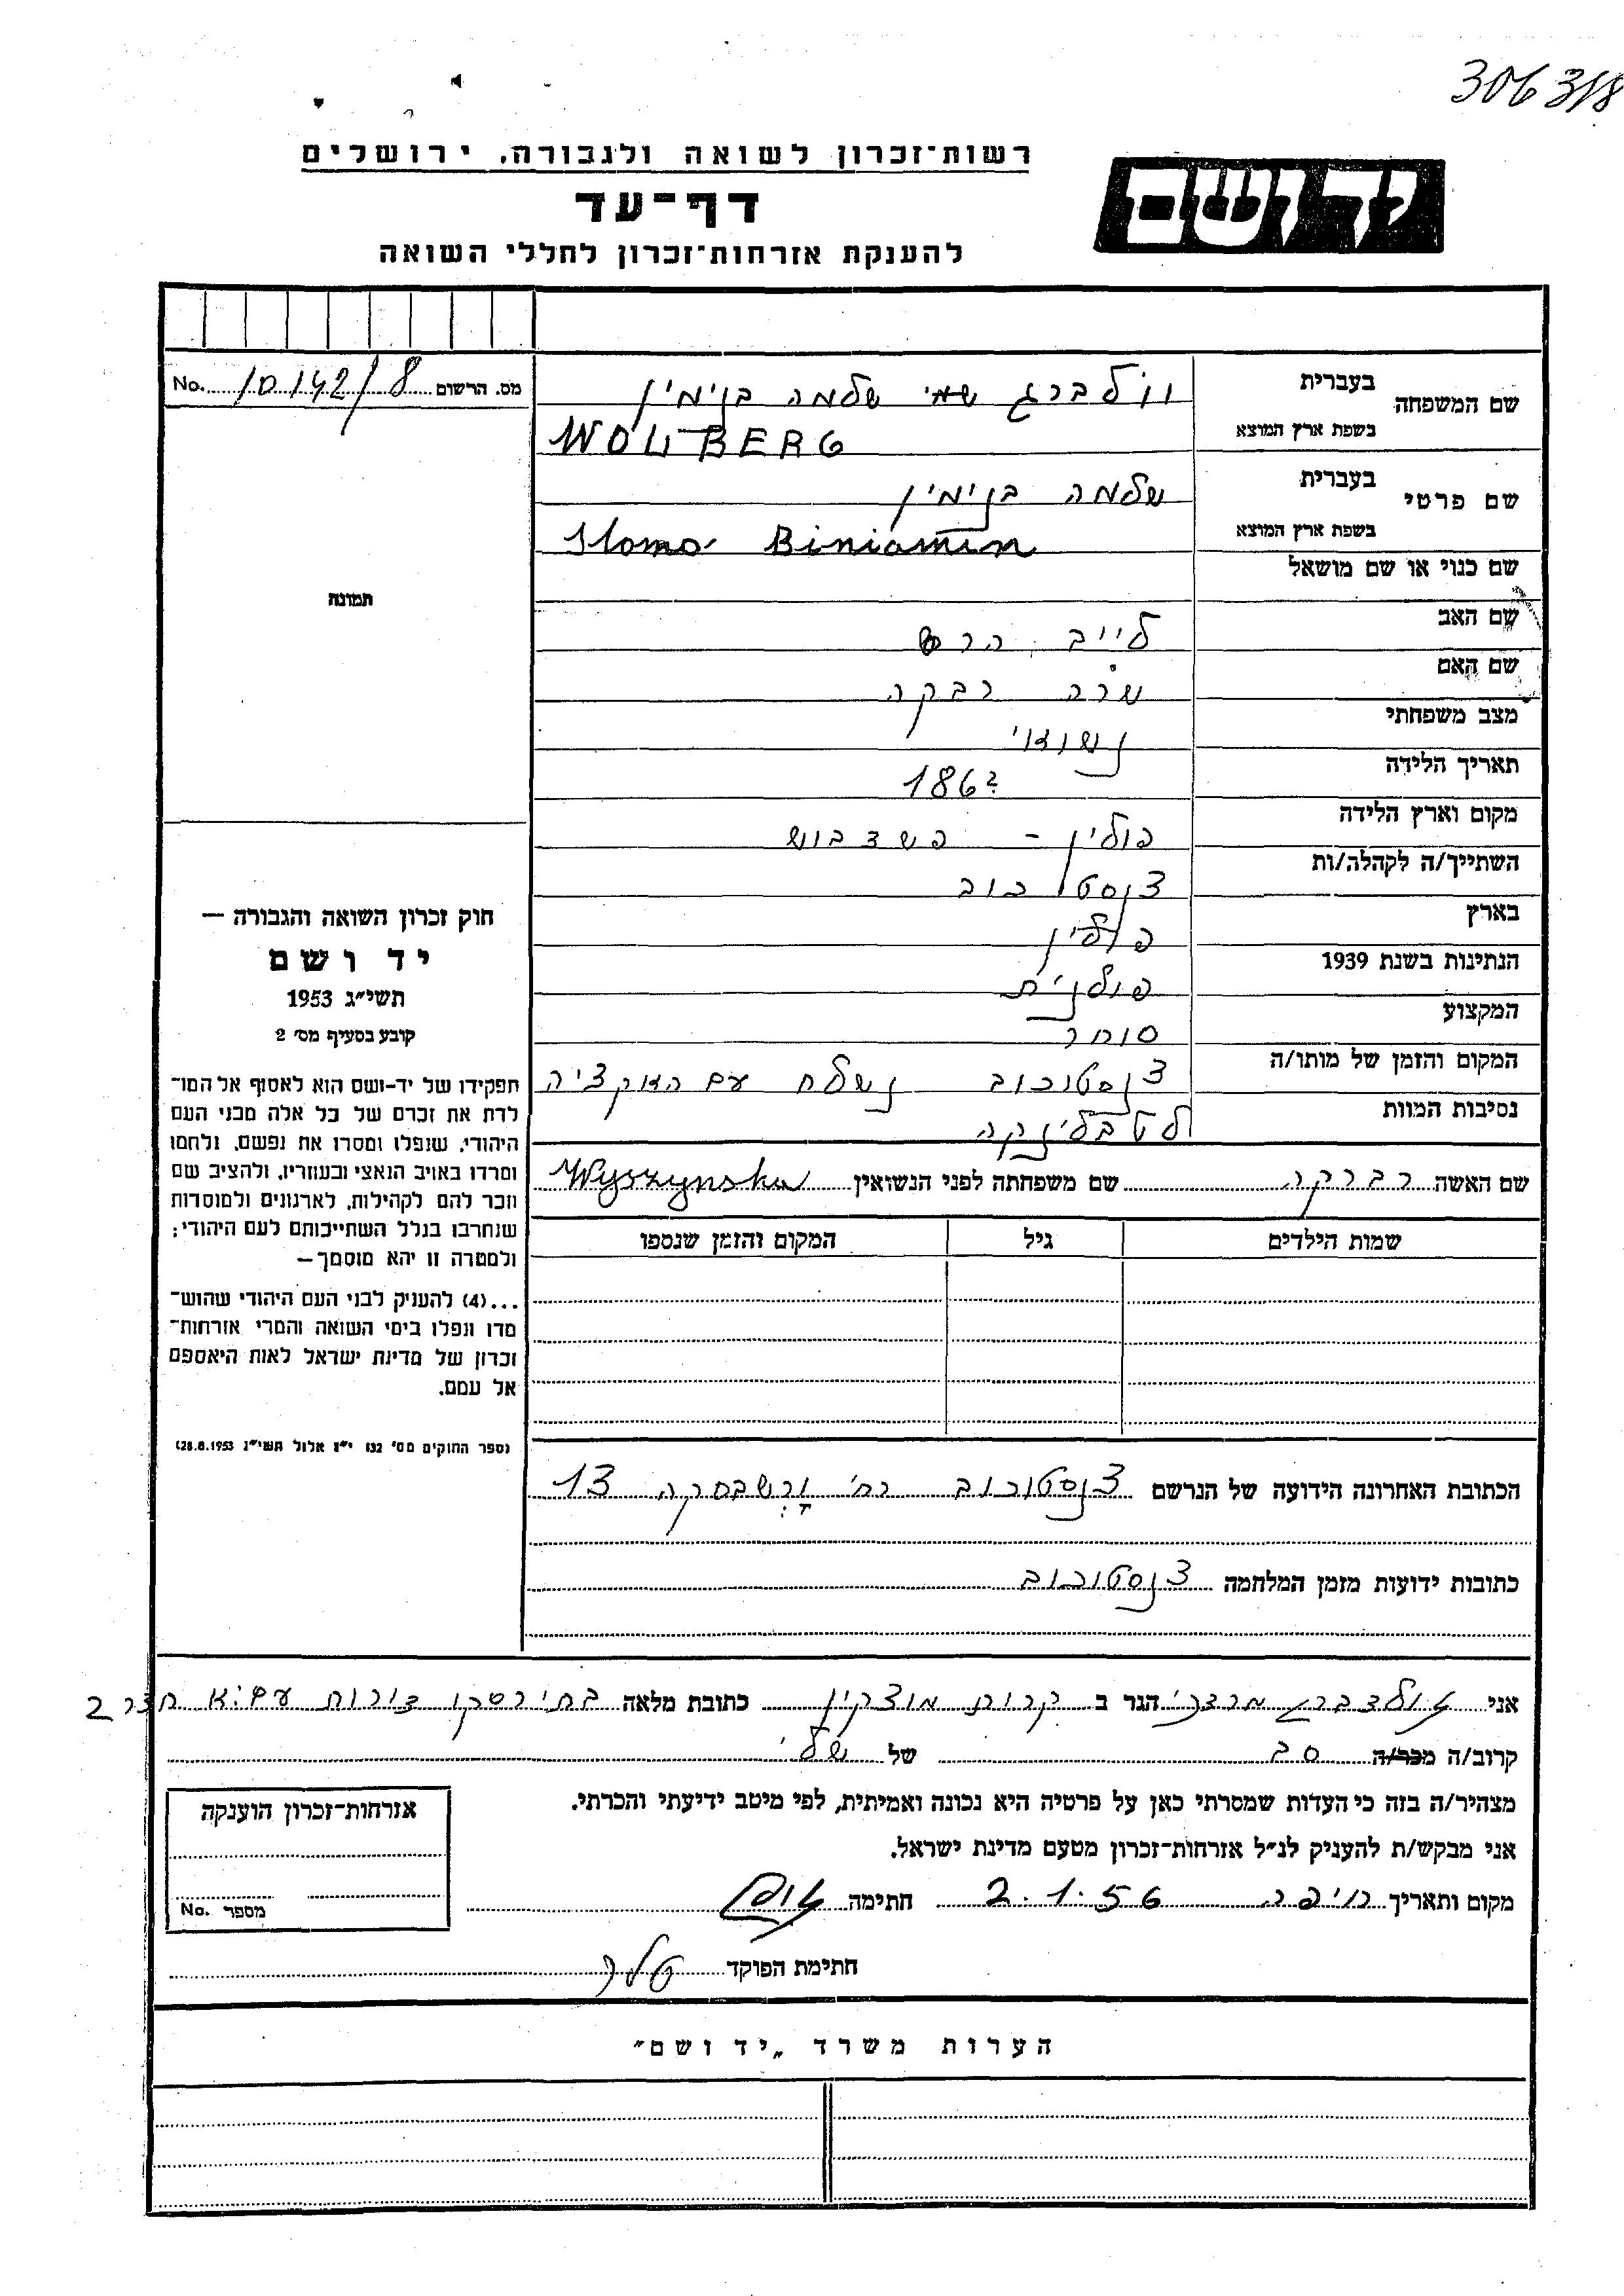 306318
רשות־זכרון לשואה ולגבורה, ירושלים
יד ושם
דף־עד
להענקת אזרחות־זכרון לחללי השואה
מס. הרשום 10142/8 No.
שם המשפחה בעברית וולברג שלמה בנימין
בשפת ארץ המוצא WOLBERG
שם פרטי בעברית שלמה בנימין
בשפת ארץ המוצא Slomo Biniamin
שם כנוי או שם מושאל
תמונה
שם האב לייב הרש
שם האם שרה רבקה
מצב משפחתי נשואי
תאריך הלידה 186?
מקום וארץ הלידה פולין -
השתייך/ה לקהלה/ות צנסטוכוב
בארץ פולין
הנתינות בשנת 1939 פולנית
המקצוע סוחר
המקום והזמן של מותו/ה צנסטוכוב נשלח עם האקציה
נסיבות המוות לטרבלינקה
שם האשה רבקה שם משפחתה לפני הנשואין Wyszynska
שמות הילדים גיל המקום והזמן שנספו
חוק זכרון השואה והגבורה —
יד ושם
תשי״ג 1953
קובע בסעיף מס׳ 2
תפקידו של יד-ושם הוא לאסוף אל המו־
לדת את זכרם של כל אלה מבני העם
היהודי, שנפלו ומסרו את נפשם, נלחמו
ומרדו באויב הנאצי ובעוזריו, ולהציב שם
וזכר להם לקהילות, לארגונים ולמוסדות
שנחרבו בגלל השתייכותם לעם היהודי;
ולמטרה זו יהא מוסמך—
...(4) להעניק לבני העם היהודי שהוש־
מדו ונפלו בימי השואה והמרי אזרחות־
זכרון של מדינת ישראל לאות היאספם
אל עמם.
(ספר החוקים מס׳ 132 י״ז אלול תשי״ג 28.8.1953)
הכתובת האחרונה הידועה של הנרשם צנסטוכוב רח׳ ורשבסקה 13
כתובות ידועות מזמן המלחמה צנסטוכוב
אני הגר ב קרית מוצקין כתובת מלאה
קרוב/ה מכר/ה סב של שלי
מצהיר/ה בזה כי העדות שמסרתי כאן על פרטיה היא נכונה ואמיתית, לפי מיטב ידיעתי והכרתי.
אני מבקש/ת להעניק לנ״ל אזרחות־זכרון מטעם מדינת ישראל.
מקום ותאריך חיפה 2.1.56 חתימה
חתימת הפוקד
אזרחות־זכרון הוענקה
מספר No.
הערות משרד „יד ושם״